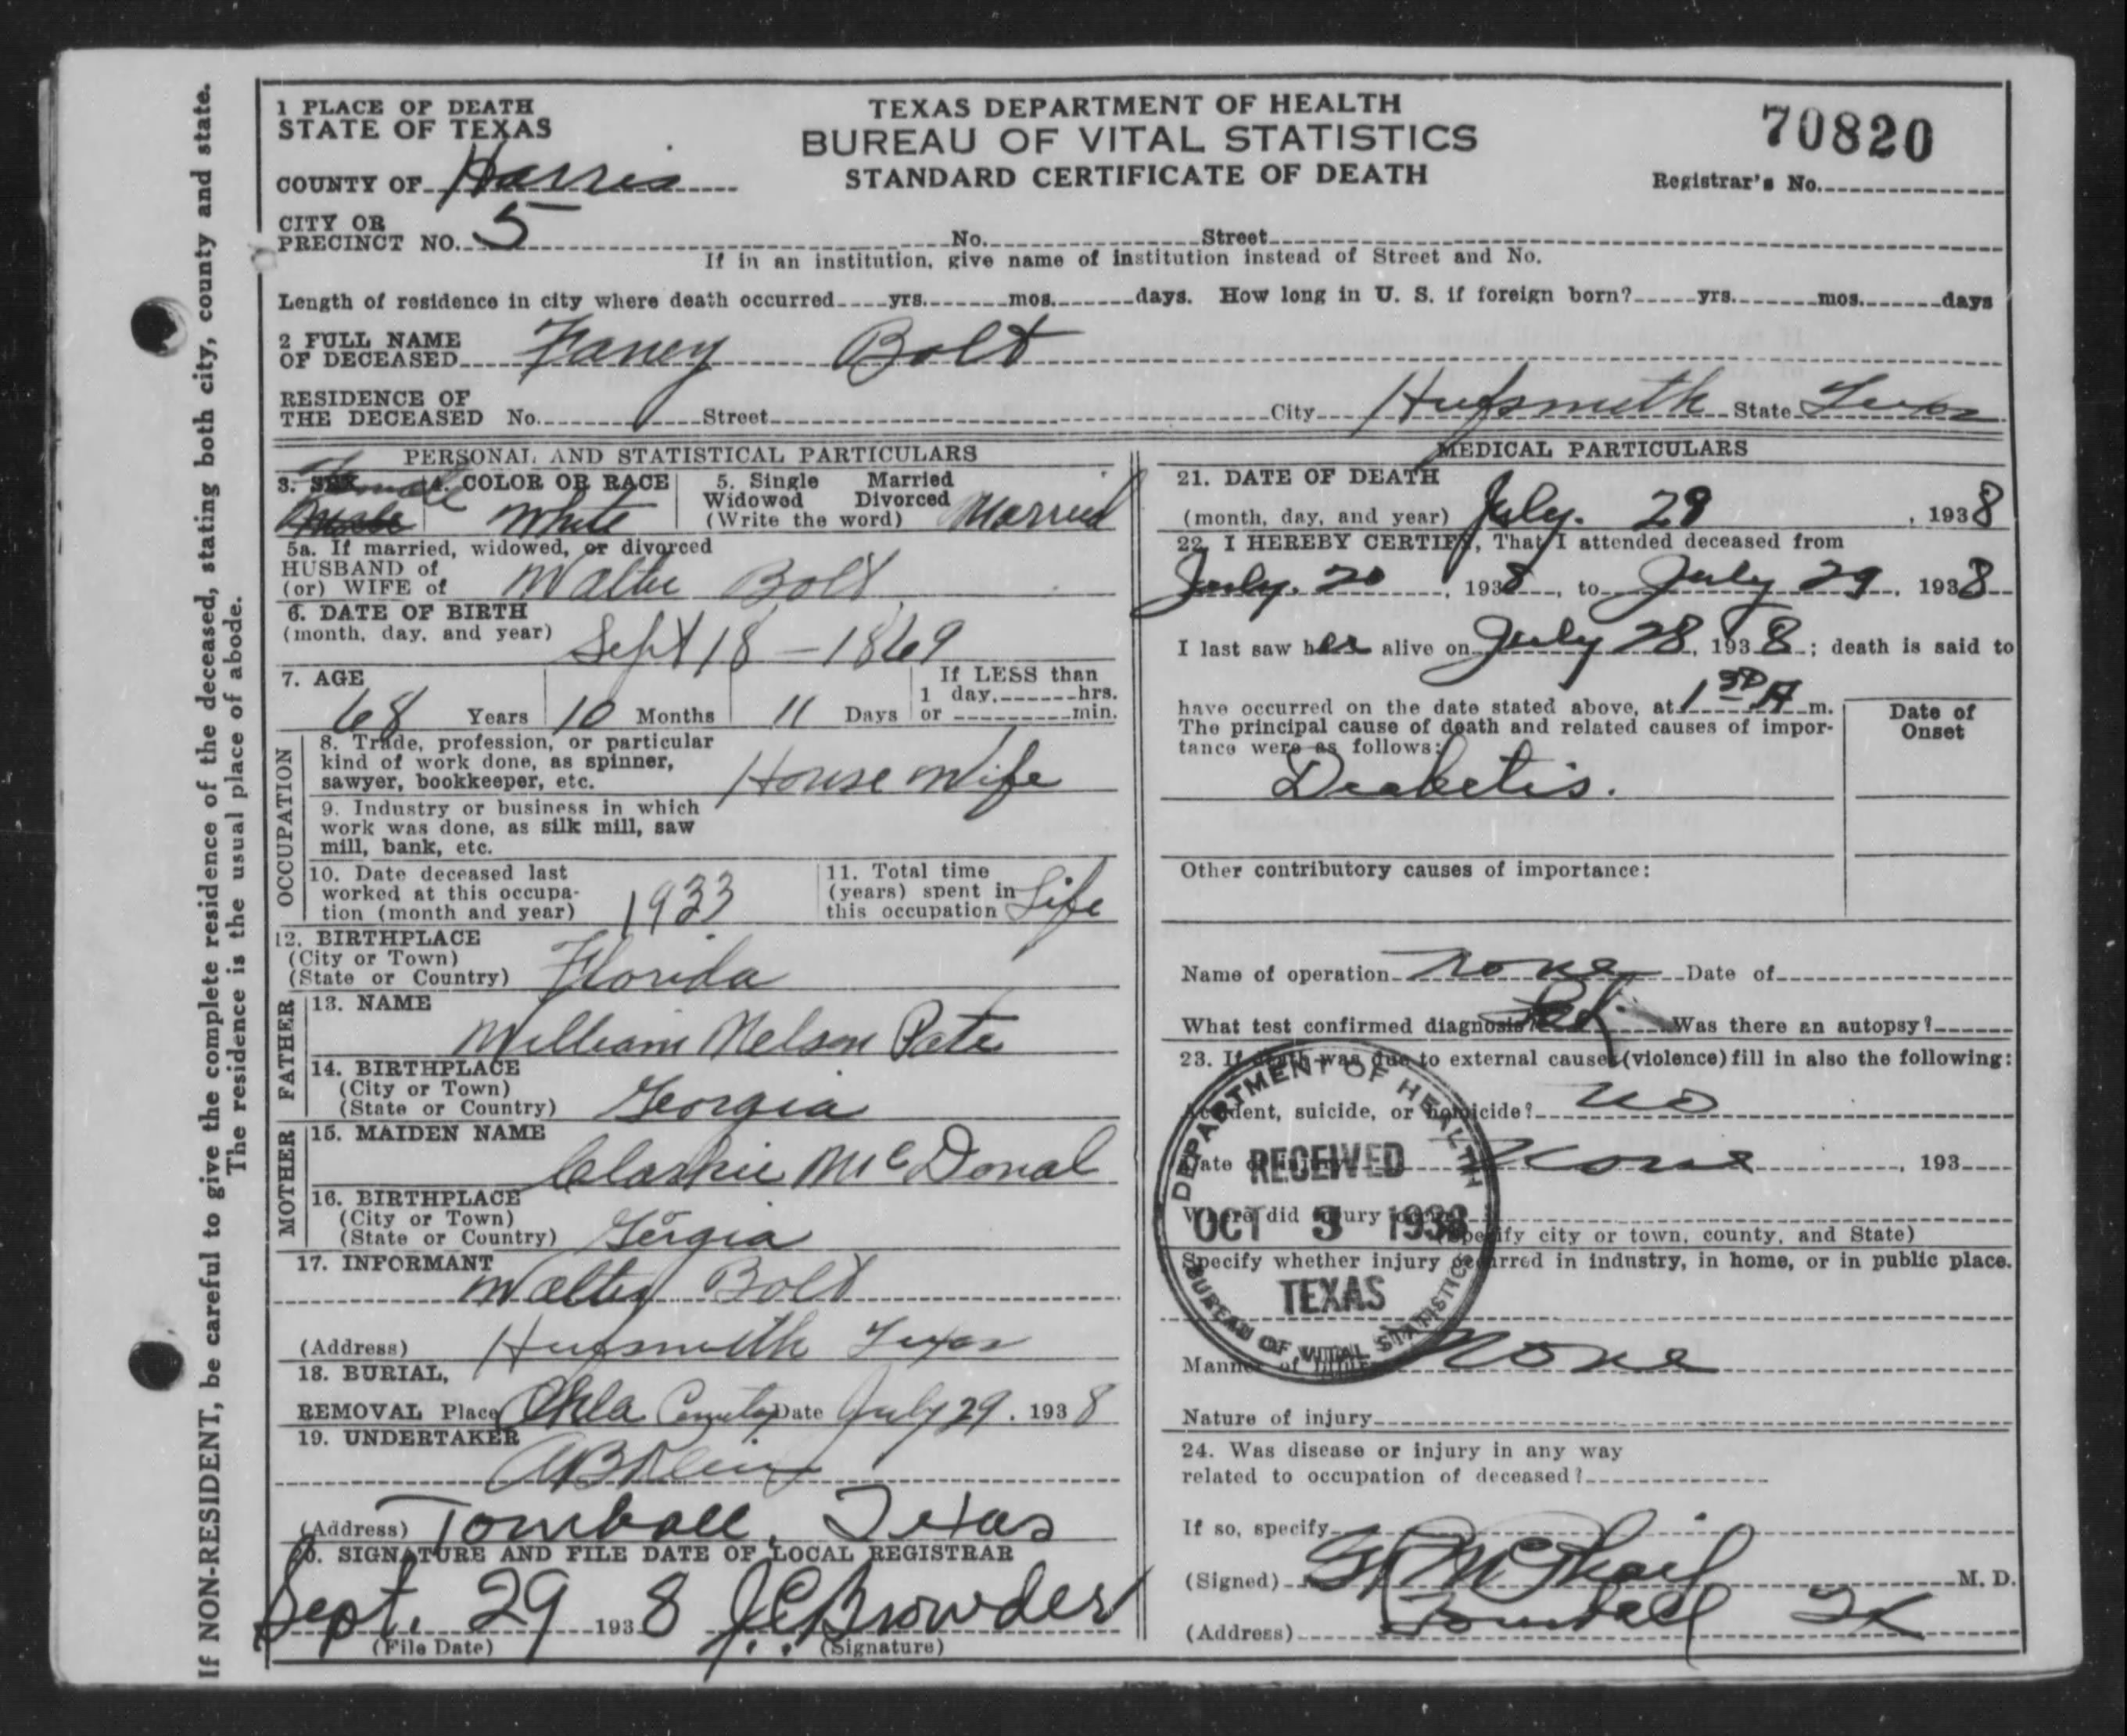 If NON-RESIDENT, be careful to give the complete residence of the deceased, stating both city, county and state.
The residence is the usual place of abode.
1 PLACE OF DEATH
STATE OF TEXAS
COUNTY OF Harris
CITY OR
PRECINCT NO. 5 No. Street
TEXAS DEPARTMENT OF HEALTH
BUREAU OF VITAL STATISTICS
STANDARD CERTIFICATE OF DEATH
70820
Registrar's No.
If in an institution, give name of institution instead of Street and No.
Length of residence in city where death occurred yrs. mos. days. How long in U. S. if foreign born? yrs. mos. days
2 FULL NAME
OF DECEASED Faney Bolt
RESIDENCE OF
THE DECEASED No. Street City Hufsmith State Texas
PERSONAL AND STATISTICAL PARTICULARS
3. SEX Female
Male
4. COLOR OR RACE
White
5. Single Married
Widowed Divorced
(Write the word) Married
5a. If married, widowed, or divorced
HUSBAND of
(or) WIFE of Walter Bolt
6. DATE OF BIRTH
(month, day, and year) Sept 18 - 1869
7. AGE
68 Years 10 Months 11 Days
If LESS than
1 day, hrs.
or min.
OCCUPATION
8. Trade, profession, or particular
kind of work done, as spinner,
sawyer, bookkeeper, etc. House Wife
9. Industry or business in which
work was done, as silk mill, saw
mill, bank, etc.
10. Date deceased last
worked at this occupa-
tion (month and year) 1933
11. Total time
(years) spent in
this occupation Life
12. BIRTHPLACE
(City or Town)
(State or Country) Florida
FATHER
13. NAME
William Nelson Pate
14. BIRTHPLACE
(City or Town)
(State or Country) Georgia
MOTHER
15. MAIDEN NAME
Clarkie McDonal
16. BIRTHPLACE
(City or Town)
(State or Country) Gergia
17. INFORMANT
Walter Bolt
(Address) Hufsmith Texas
18. BURIAL,
REMOVAL Place Date July 29, 1938
19. UNDERTAKER
A B Klein
(Address) Tomball, Texas
20. SIGNATURE AND FILE DATE OF LOCAL REGISTRAR
Sept. 29 1938 J. C. Browder
(File Date) (Signature)
MEDICAL PARTICULARS
21. DATE OF DEATH
(month, day, and year) July. 29, 1938
22. I HEREBY CERTIFY, That I attended deceased from
July. 20, 1938, to July 29, 1938
I last saw her alive on July 28, 1938; death is said to
have occurred on the date stated above, at 1 30 A m.
The principal cause of death and related causes of impor-
tance were as follows:
Date of
Onset
Diabetis.
Other contributory causes of importance:
Name of operation None Date of
What test confirmed diagnosis? Was there an autopsy?
23. If death was due to external causes (violence) fill in also the following:
Accident, suicide, or homicide? no
Date of injury None, 193
Where did injury occur?
(Specify city or town, county, and State)
Specify whether injury occurred in industry, in home, or in public place.
Manner of injury None
Nature of injury
24. Was disease or injury in any way
related to occupation of deceased?
If so, specify
(Signed) McPhail M. D.
(Address) Tomball Tx
DEPARTMENT OF HEALTH
RECEIVED
OCT 3 1938
TEXAS
BUREAU OF VITAL STATISTICS